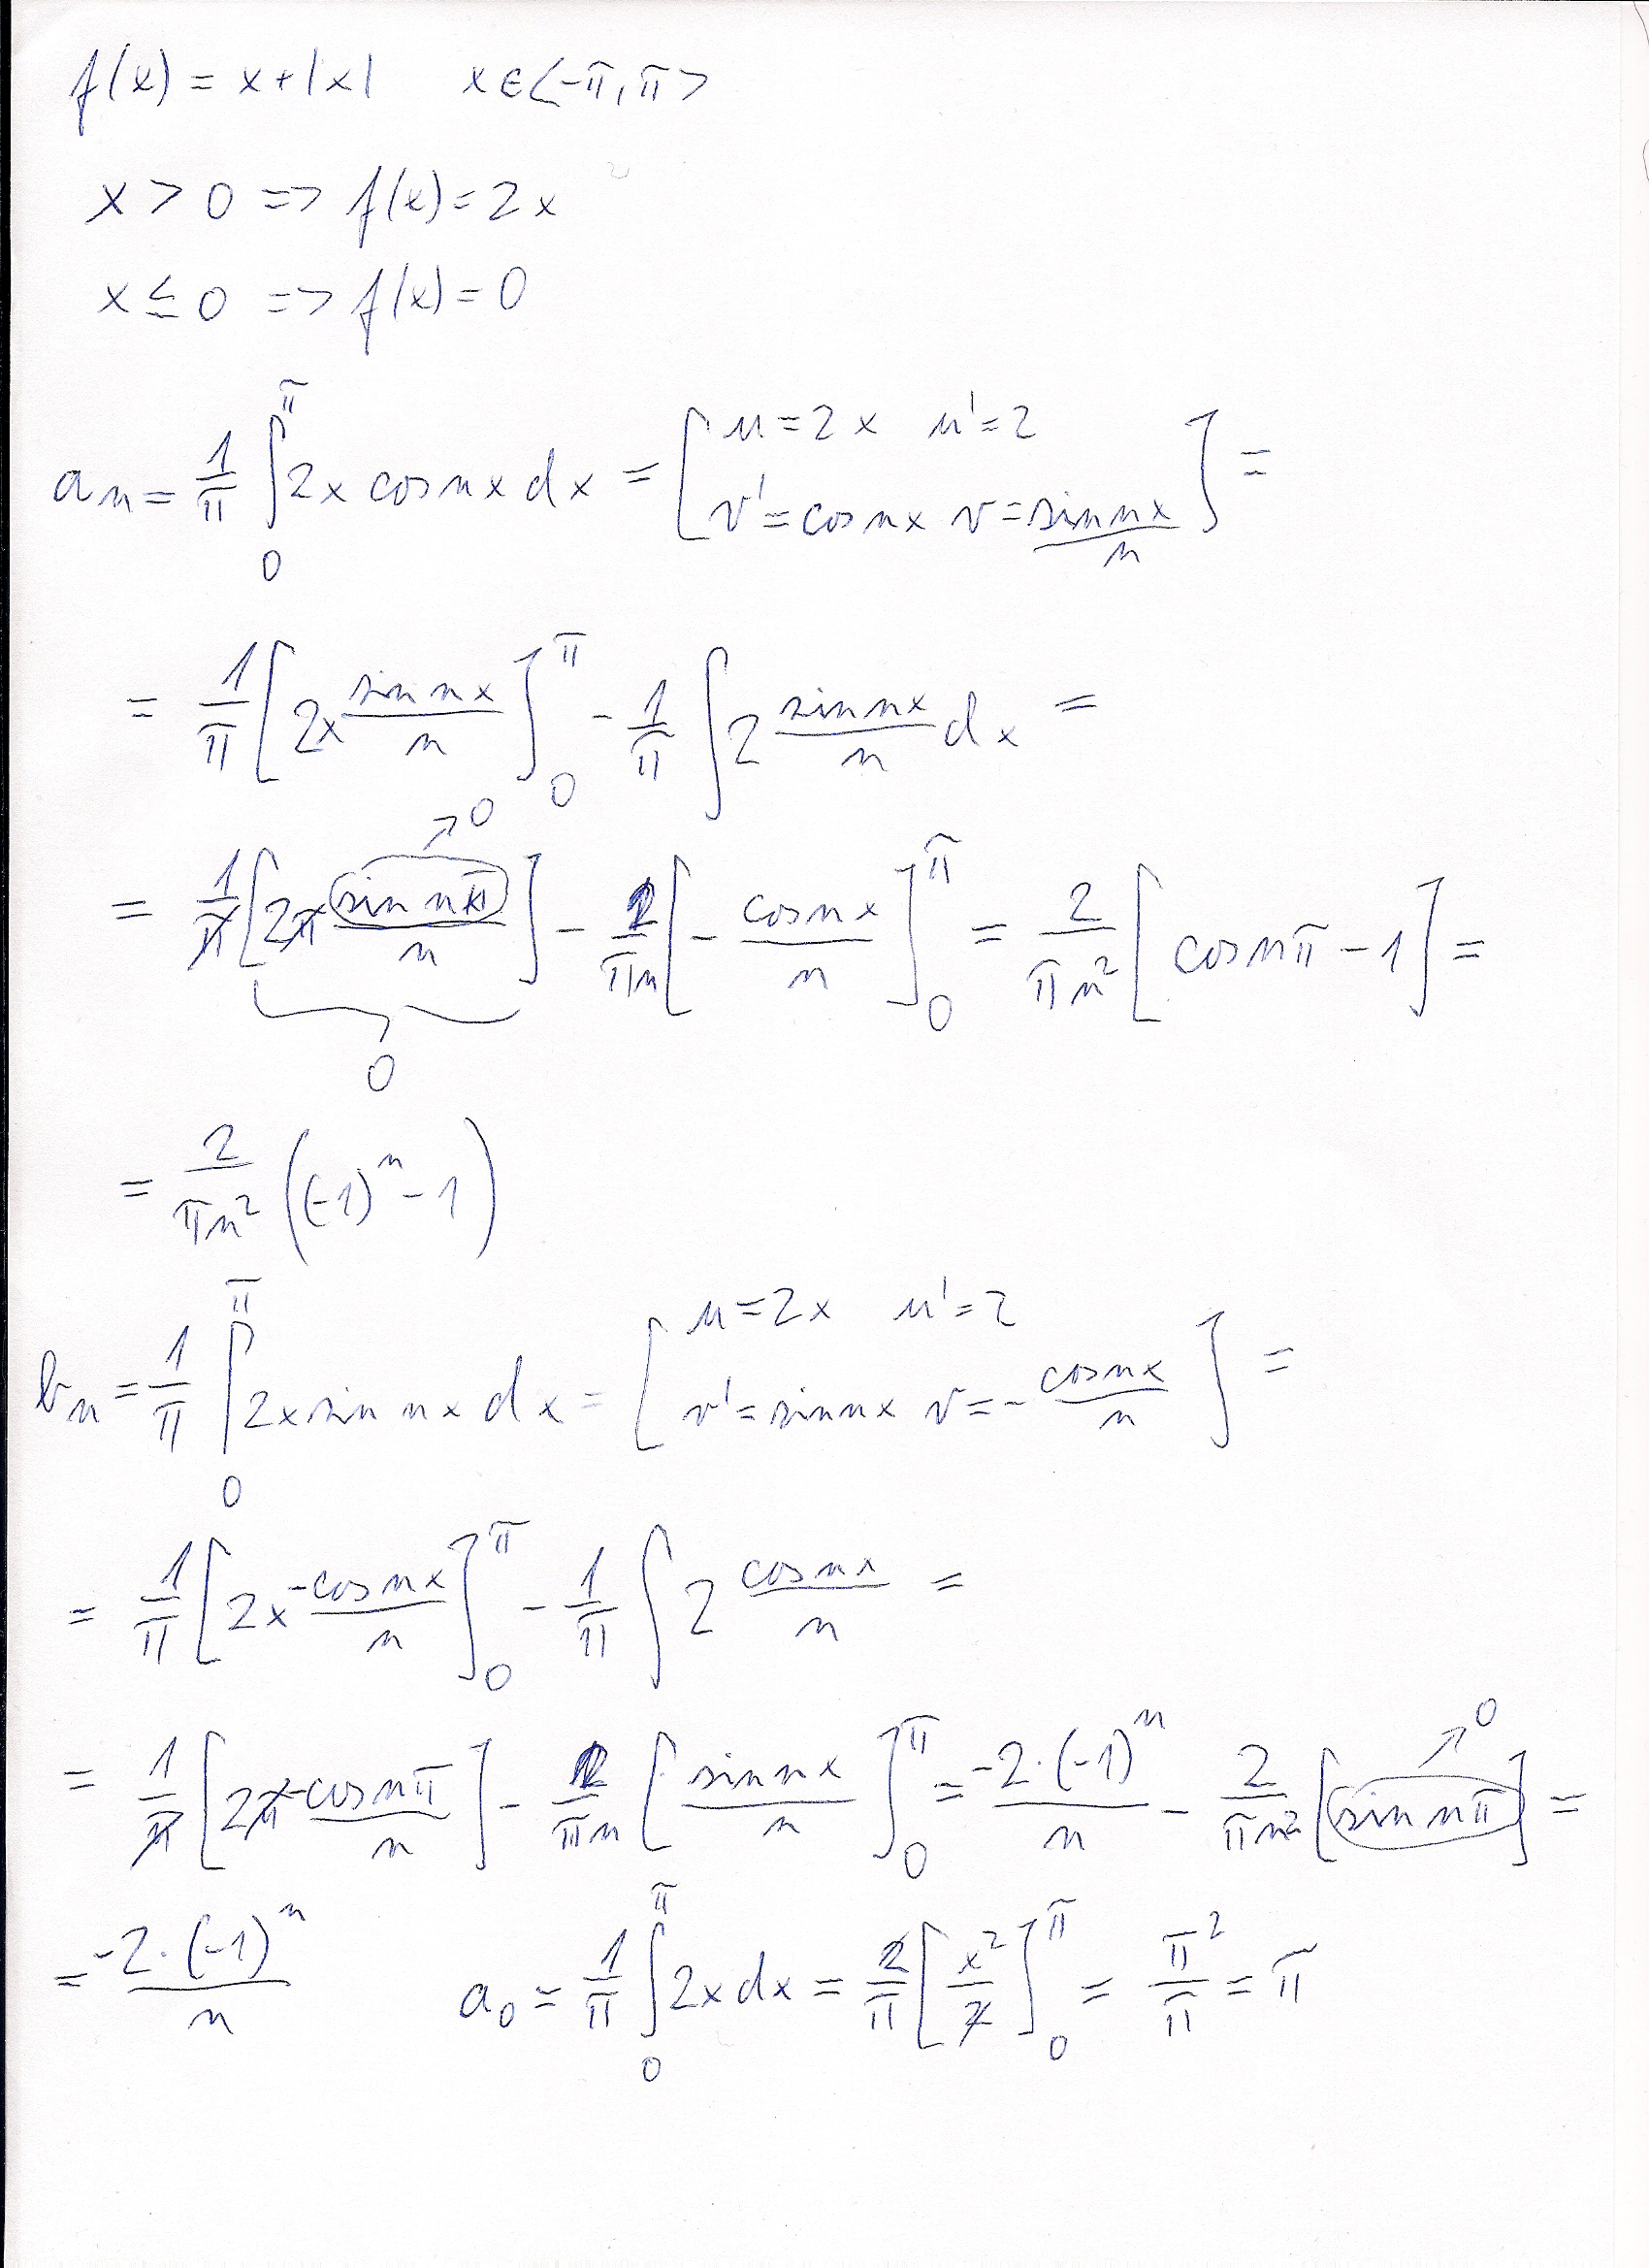 f(x) = x+|x|   x∈<-π,π>
x > 0 => f(x)=2x
x ≤ 0 => f(x)=0
a_n = 1/π ∫_0^π 2x cosnx dx = [u=2x  u'=2  v'=cosnx  v=sinnx/n] =
= 1/π [2x sinnx/n]_0^π - 1/π ∫ 2 sinnx/n dx =
= 1/π [2π sin nπ/n] - 2/πn [- cosnx/n]_0^π = 2/πn² [cosnπ - 1] =
→0
0
= 2/πn² ((-1)^n - 1)
b_n = 1/π ∫_0^π 2x sin nx dx = [u=2x  u'=2  v'=sinnx  v=-cosnx/n] =
= 1/π [2x -cosnx/n]_0^π - 1/π ∫ 2 cosnx/n =
= 1/π [2π -cosnπ/n] - 2/πn [sinnx/n]_0^π = -2·(-1)^n/n - 2/πn² [sin nπ] =
→0
= -2·(-1)^n/n   a_0 = 1/π ∫_0^π 2x dx = 2/π [x²/2]_0^π = π²/π = π